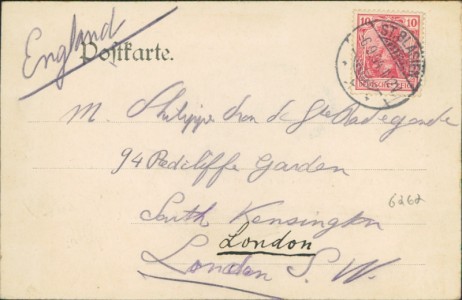 England
Postkarte.
10 10
ST. BLASIEN
M. Philippe de Ste Radegonde
94 Redcliffe Garden
6262
South Kensington
London
London S. W.